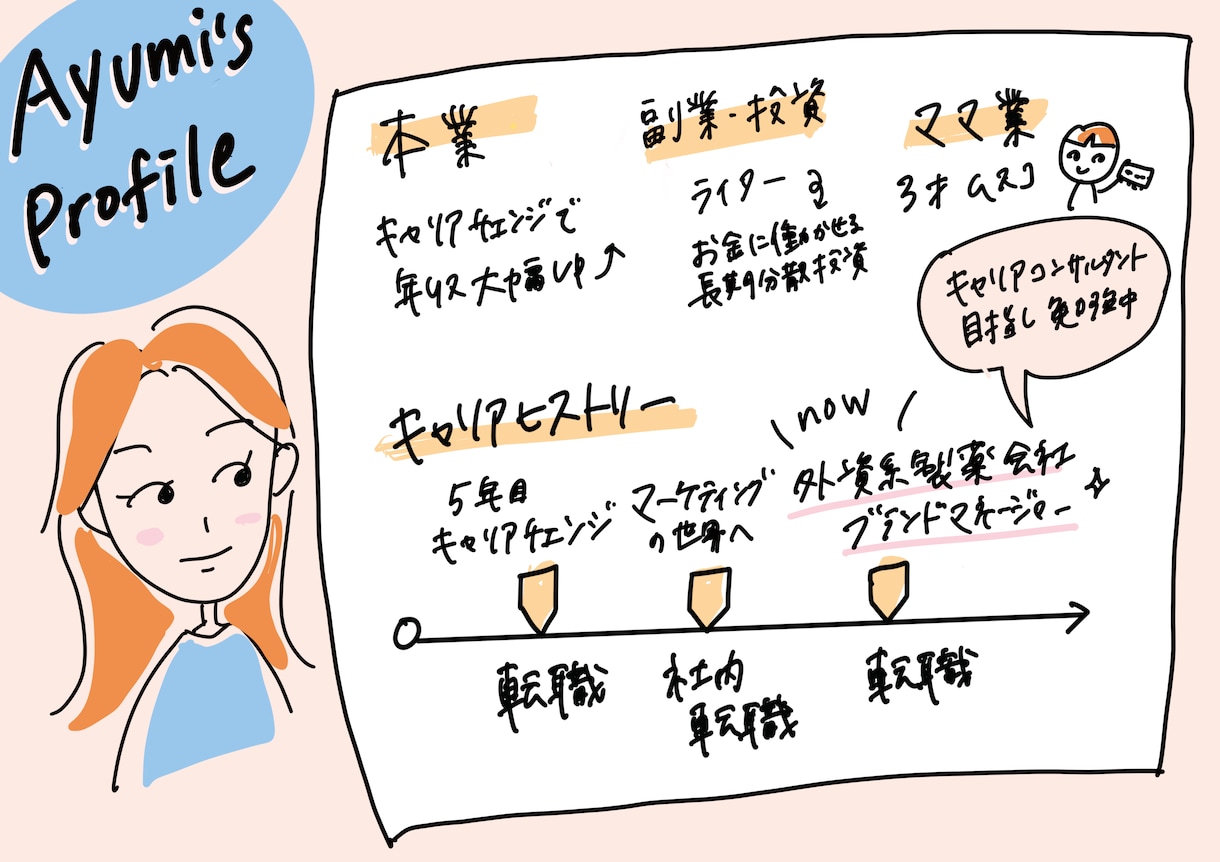 Ayumi's
Profile
本業
キャリアチェンジで
年収大幅UP↗
副業・投資
ライター &
お金に働かせる
長期分散投資
ママ業
3才ムスコ
キャリアコンサルタント
目指し勉強中
キャリアヒストリー
5年目
キャリアチェンジ
マーケティング
の世界へ
\ now /
外資系製薬会社
ブランドマネージャー
転職
社内
転職
転職